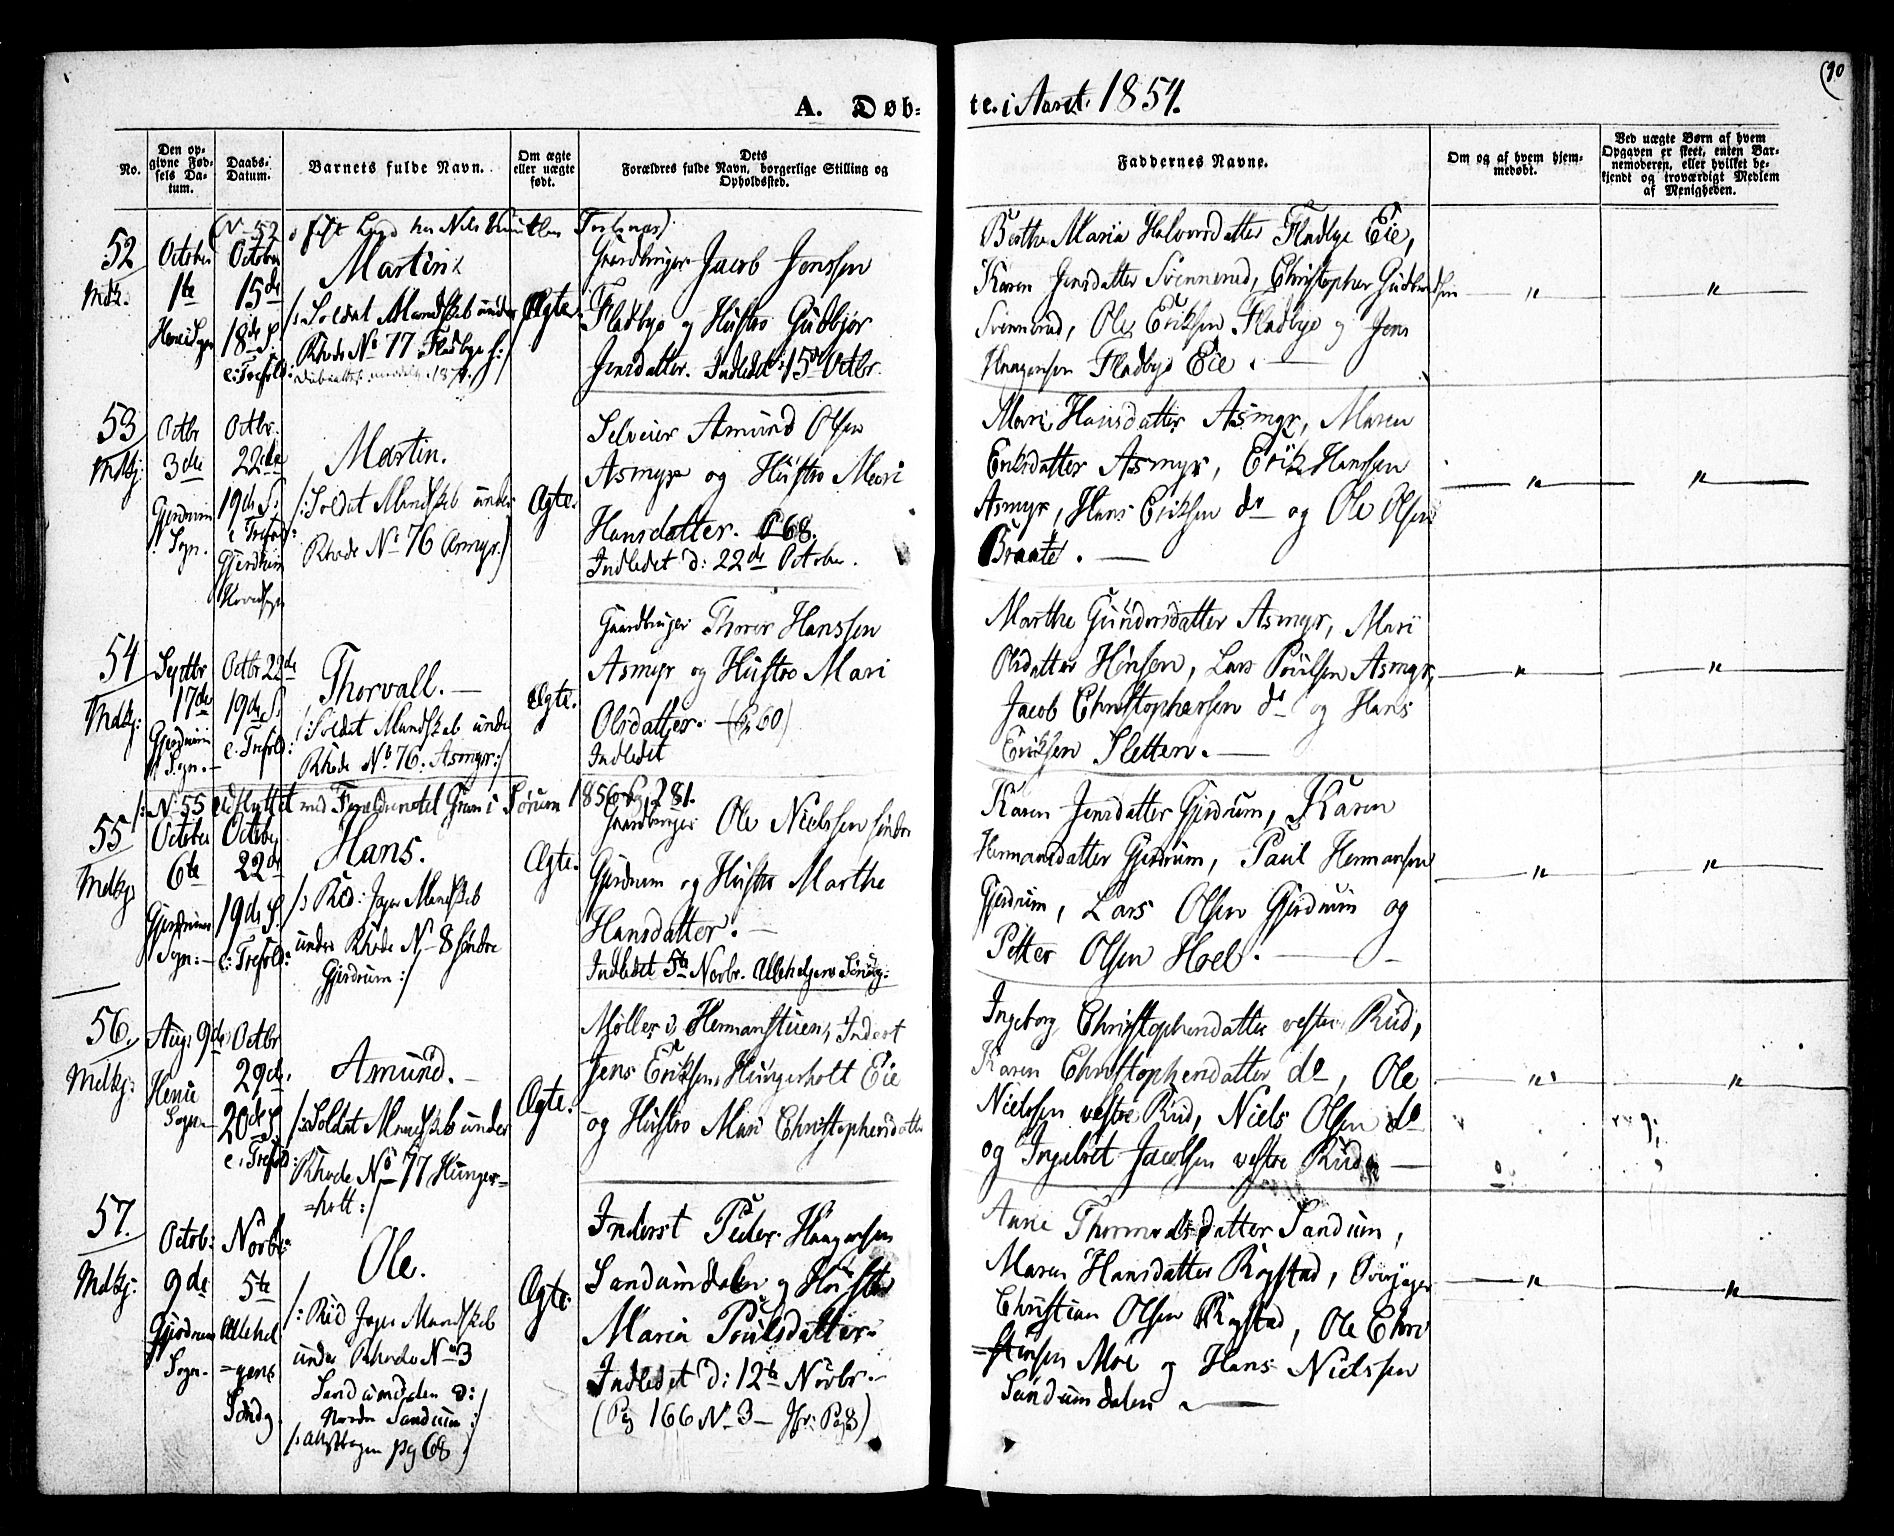 90
A. Døb- te i Aaret 1854.
No.
Den op-
givne Fød-
sels Da-
tum.
Daabs-
Datum.
Barnets fulde Navn.
Om ægte
eller uægte
født.
Dets
Forældres fulde Navn, borgerlige Stilling og
Opholdssted.
Faddernes Navne.
Om og af hvem hjem-
medøbt.
Ved uægte Børn af hvem
Opgaven er skeet, enten Bar-
nemoderen, eller hvilket be-
kjendt og troværdigt Medlem
af Menigheden.
52
Mdkj:
October
1te
October
15de
18de S.
e: Trefold:
Martin
/: Soldat Mandskab under
Rhode No 77 Fladbye :/
Ægte.
Gaardbruger Jacob Jenssen
Fladbye og Hustro Gudbjør
Jensdatter. Indledet 15de Octbr.
Berthe Maria Halvorsdatter Fladbye Eie,
Karen Jensdatter Svennerud, Christopher Gudbrandsen
Svennerud, Ole Eriksen Fladbye og Jens
Haagensen Fladbye Eie.
" "
53
Mdkj:
Octbr
3de
Gjerdrum
Sogn.
Octbr.
22de
19de S.
e Trefold:
Gjerdrum
Hovedsogn
Martin.
/: Soldat Mandskab under
Rhode No 76 Asmyr :/
Ægte.
Selveier Amund Olsen
Asmyr og Hustro Mari
Hansdatter. 68.
Indledet d: 22de October.
Mari Hansdatter Asmyr, Maren
Eriksdatter Asmyr, Erik Hanssen
Asmyr, Hans Eriksen do og Ole Olsen
Braate.
" "
54
Mdkj:
Septbr
17de
Gjerdrum
Sogn.
Octbr 22de
19de S.
e. Trefold:
Thorvall.
/: Soldat Mandskab under
Rhode No 76. Asmyr :/
Ægte.
Gaardbruger Thorer Hanssen
Asmyr og Hustro Mari
Olsdatter. 60)
Indledet
Marthe Gundersdatter Asmyr, Mari
Olsdatter Hønsen, Lars Poulsen Asmyr,
Jacob Christophersen do og Hans
Eriksen Sletten.
" "
/: No 55 udflyttet med Forældrene til i Sørum 1856 281.
55
Mdkj:
October
6te
Gjerdrum
Sogn:
October
22de
19de S.
e: Trefold:
Hans.
/: Rid: Jæger Mandskab
under Rhode No 8 søndre
Gjerdrum :/
Ægte.
Gaardbruger Ole Nielssen søndre
Gjerdrum og Hustro Marthe
Hansdatter.
Indledet 5te Novbr. Allehelgens Søndag:
Karen Jensdatter Gjerdrum, Karen
Hermansdatter Gjerdrum, Paul Hermansen
Gjerdrum, Lars Olsen Gjerdrum og
Petter Olsen Hoel.
" "
56.
Mdkj:
Aug: 9de
Heni
Sogn
Octbr
29de.
20de S.
e: Trefold:
Amund.
/: Soldat Mandskab under
Rhode No 77 Hunger=
=holt :/
Ægte.
Møller i Hermanstuen, Inderst
Jens Eriksen, Hungerholt Eie
og Hustro Mari Christophersdatter
Ingeborg Christophersdatter vestre Rud,
Karen Christophersdatter do, Ole
Nielssen vestre Rud, Niels Olsen do
og Ingebret Jacobsen vestre Rud
" "
57.
Mdkj:
Octob:
9de
Gjerdrum
Sogn.
Novbr:
5te
Allehel
=gens
Søndg.
Ole.
/: Rid Jæger Mandskab
under Rhode No 3
Sandumdalen
Nordre Sandum :/
pg 68
Ægte.
Inderst Peder Haagensen
Sandumdalen og Hustro
Maria Poulsdatter.
Indledet d: 12te Novbr.
(Pg 166 No 3
Anne Thormodsdatter Sandum,
Maren Hansdatter Rogstad, Overjæger
Christian Olsen Rogstad, Ole Chri
=stensen Moe og Hans Nielssen
Sandumdalen
" "